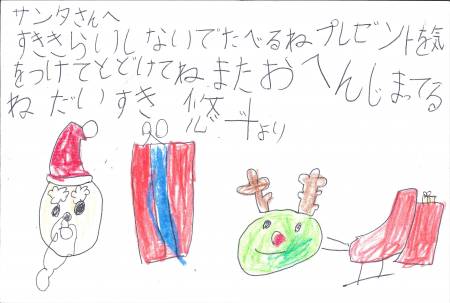 サンタさんへ
すききらいしないでたべるねプレゼントを気
をつけてとどけてねまたおへんじまってる
ねだいすき 悠斗より